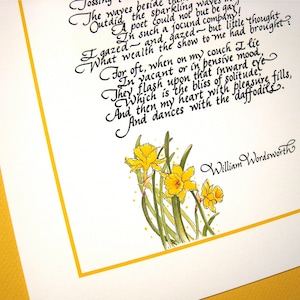 Tossing
The waves beside them
Outdid the sparkling waves in
A poet could not but be gay,
In such a jocund company!
I gazed~ and gazed~ but little thought
What wealth the show to me had brought:
For oft, when on my couch I lie
In vacant or in pensive mood,
They flash upon that inward eye
Which is the bliss of solitude;
And then my heart with pleasure fills,
And dances with the daffodils.
William Wordsworth